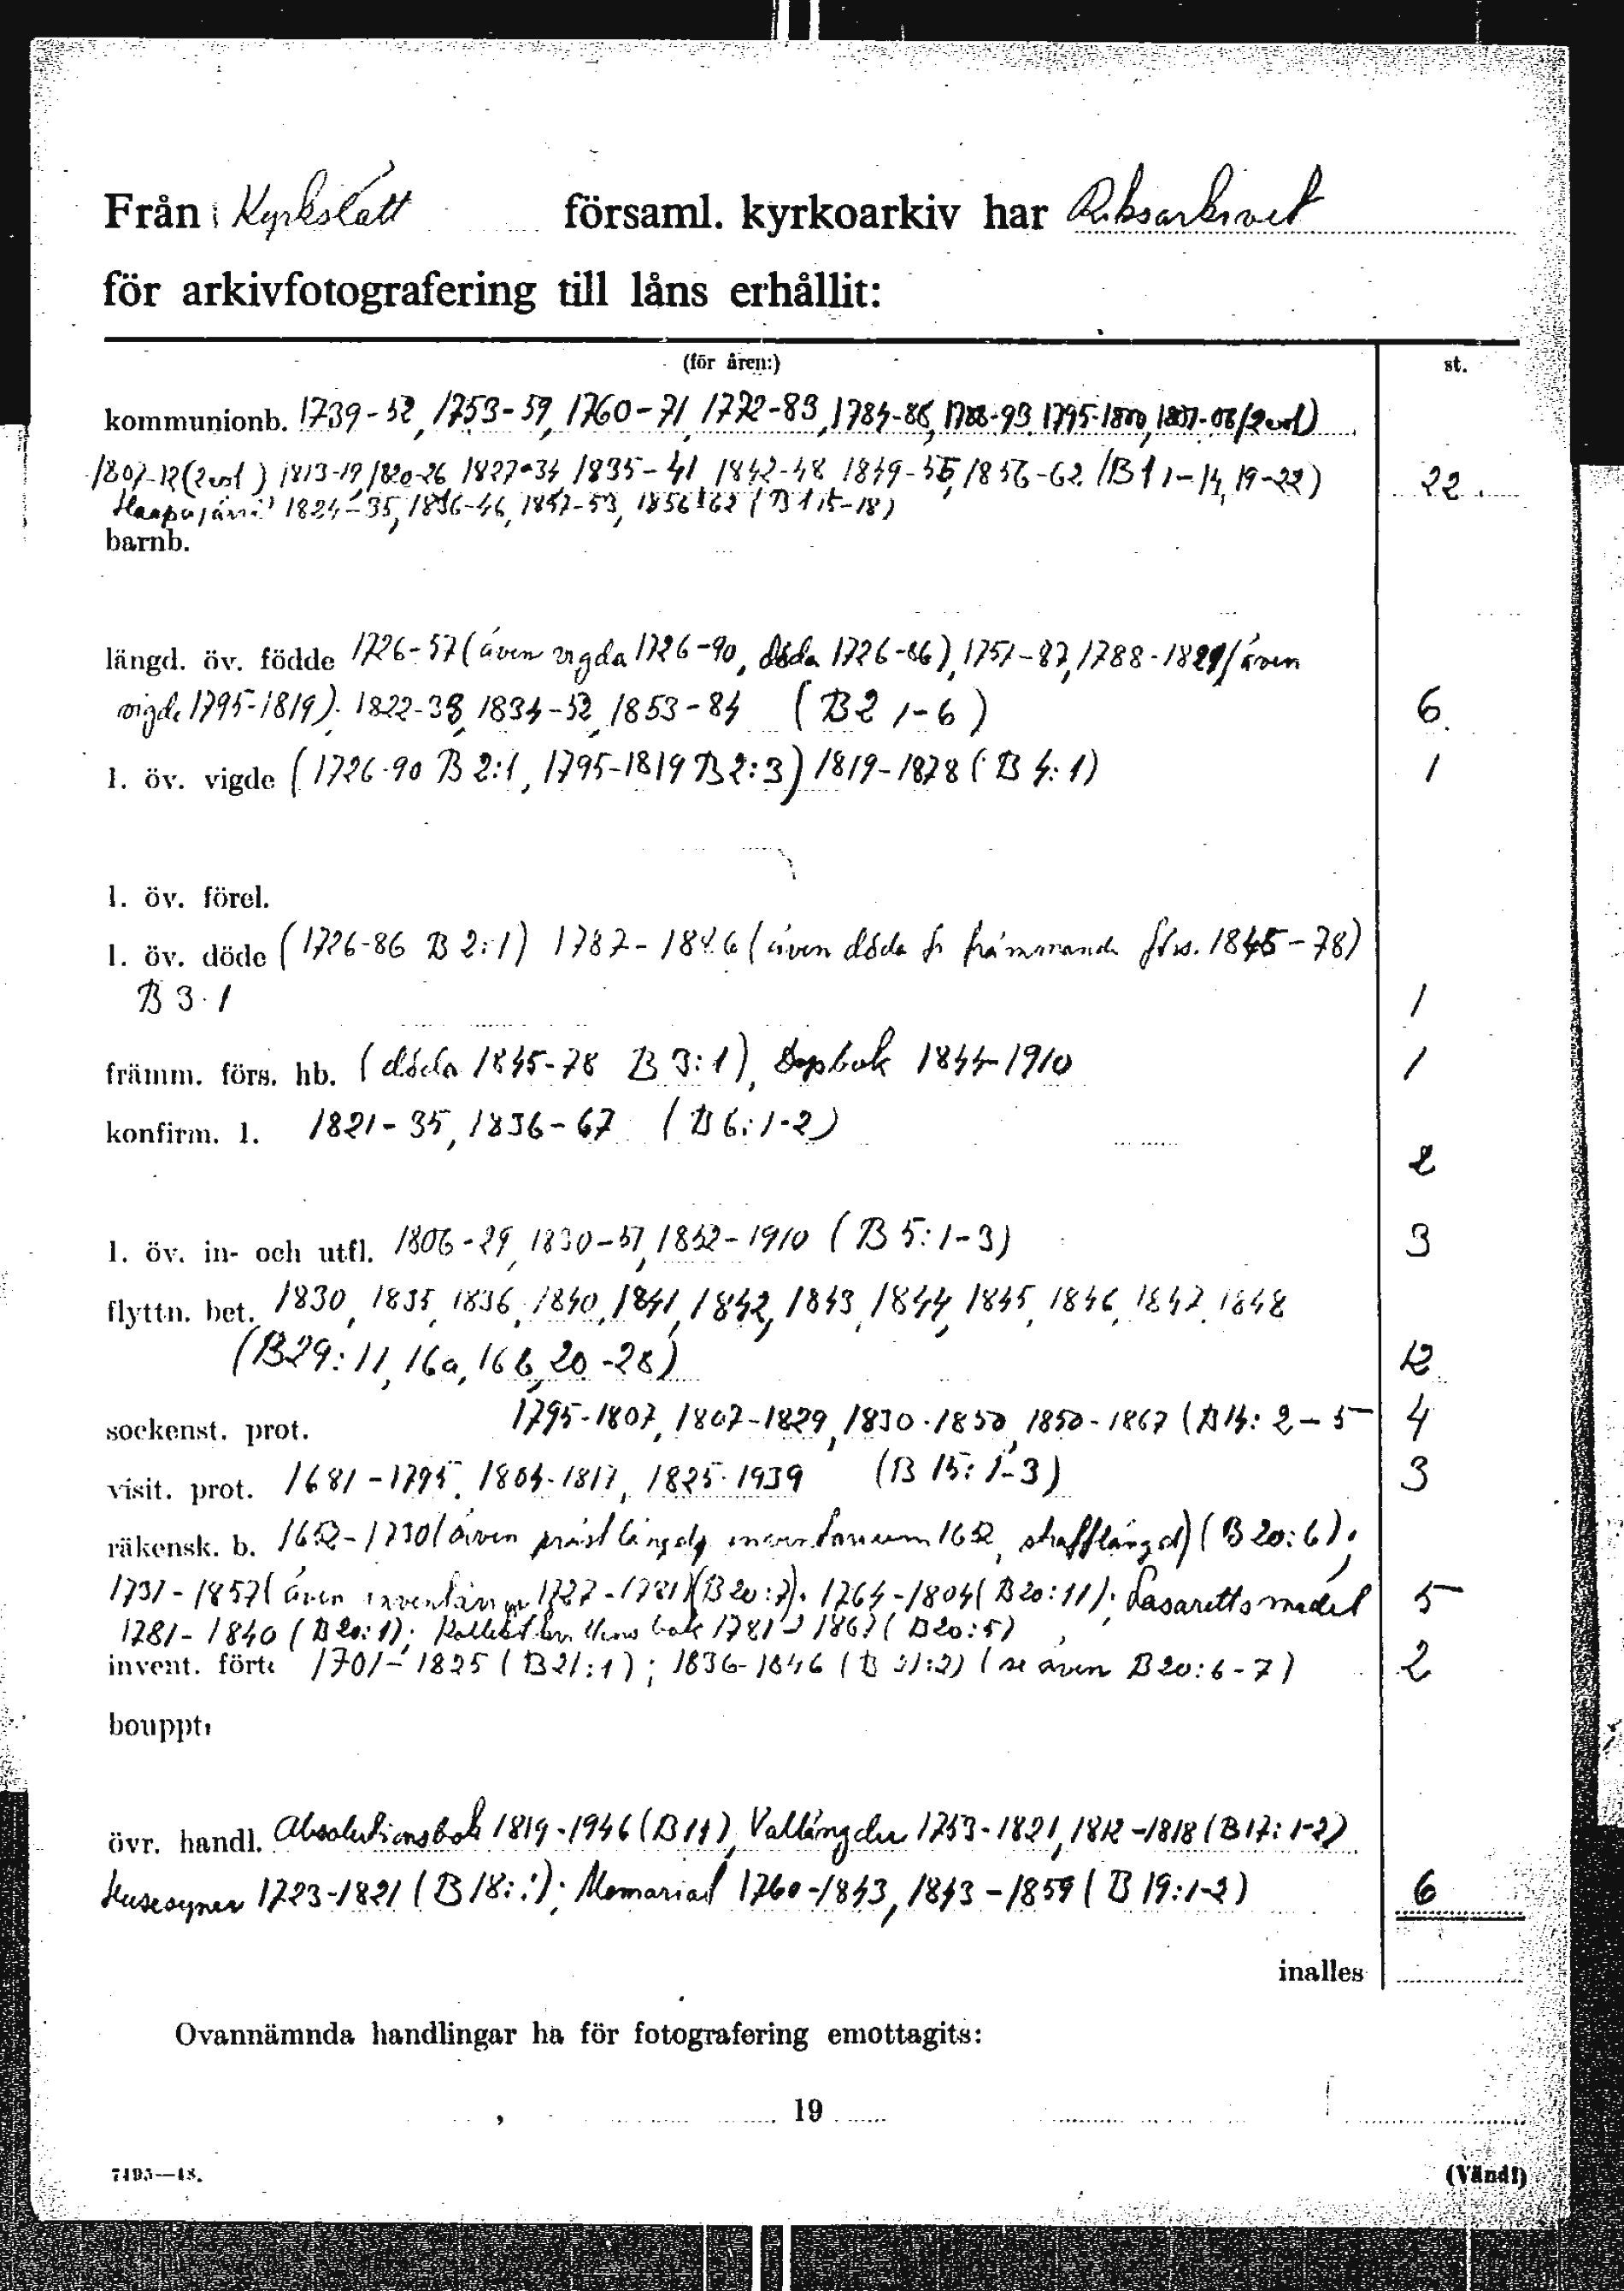 Från Kyrkslätt församl. kyrkoarkiv har Riksarkivet
för arkivfotografering till låns erhållit:
(för åren:) st.
kommunionb. 1739-52, 1753-59, 1760-71, 1772-83, 1784-86, 1788-93, 1795-1800, 1801-06 (2 vol)
1807-12 (2 vol) 1813-19, 1820-26, 1827-34, 1835-41, 1842-48, 1849-55, 1856-62 (B 1 1-14, 19-22) 22
Haapajärvi 1824-35, 1836-46, 1847-53, 1856-62 (B 1 15-18)
barnb.
längd. öv. födde 1726-57 (även vigda 1726-90, döda 1726-86), 1757-87, 1788-1821 (även
vigde 1795-1819). 1822-33, 1834-52, 1853-84 (B 2 1-6) 6
l. öv. vigde (1726-90 B 2:1, 1795-1819 B 2:3) 1819-1878 (B 4:1) 1
l. öv. förel.
l. öv. döde (1726-86 B 2:1) 1787-1846 (även döda fr främmande förs. 1845-78)
B 3:1 1
främm. förs. hb. (döda 1845-78 B 3:1), Dopbok 1844-1910 1
konfirm. l. 1821-35, 1836-67 (B 6:1-2)
2
l. öv. in- och utfl. 1806-29, 1830-51, 1852-1910 (B 5:1-3) 3
flyttn. bet. 1830, 1835, 1836, 1840, 1841, 1842, 1843, 1844, 1845, 1846, 1847, 1848
(B29: 11, 16a, 16b, 20-28) 12
sockenst. prot. 1795-1807, 1807-1829, 1830-1850, 1850-1867 (B 14: 2-5 4
visit. prot. 1681-1795, 1804-1817, 1825-1939 (B 15: 1-3) 3
räkensk. b. 1652-1730 (även prästlängd, inventarium 1652, strafflängd) (B 20:6);
1731-1857 (även 1727-1781) (B 20:7). 1764-1804 (B 20:11); Lasarettsmedel 5
1781-1840 (B 20:1); bok 1781-1867 (B 20:5)
invent. fört. 1701-1825 (B 21:1); 1836-1846 (B 21:2) (se även B 20:6-7) 2
bouppt.
övr. handl. Absolutionsbok 1819-1946 (B 11), Vallängder 1753-1821, 1812-1818 (B 17: 1-2)
Husesyner 1723-1821 (B 18:1); Memorial 1760-1843, 1843-1859 (B 19:1-2) 6
inalles
Ovannämnda handlingar ha för fotografering emottagits:
, 19
7193—48.
(Vänd!)